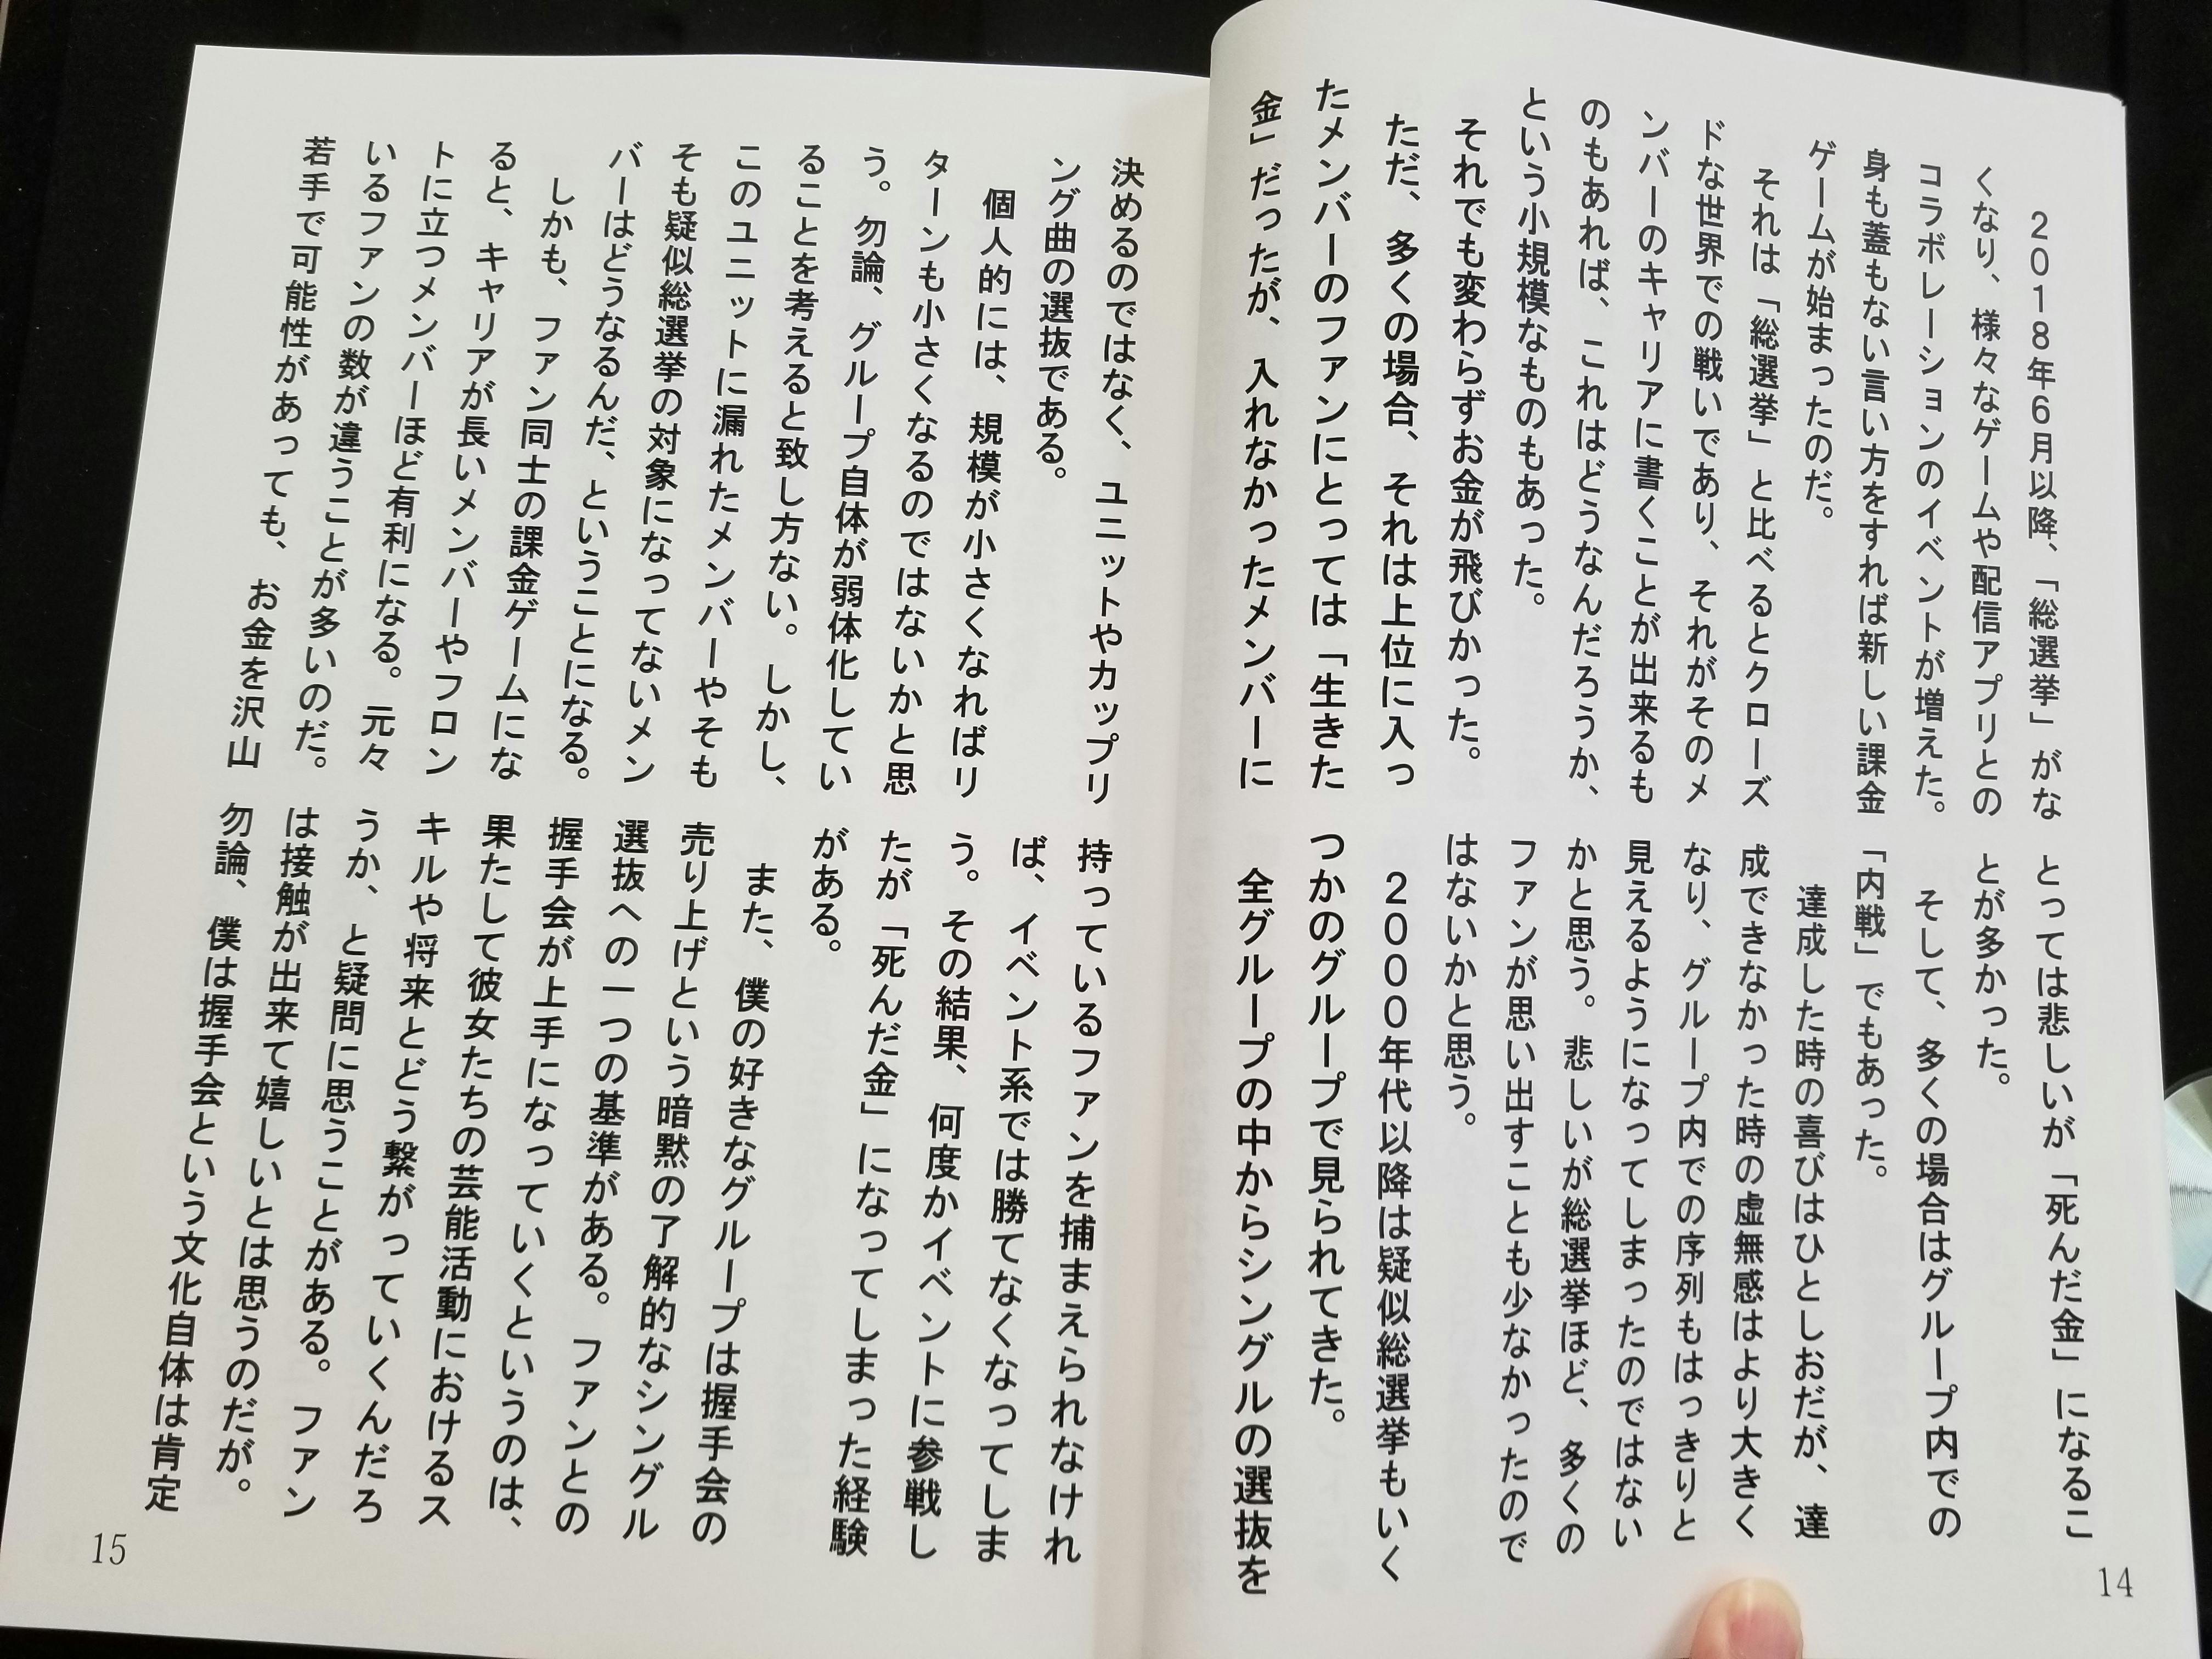 ２０１８年６月以降、「総選挙」がな
くなり、様々なゲームや配信アプリとの
コラボレーションのイベントが増えた。
身も蓋もない言い方をすれば新しい課金
ゲームが始まったのだ。
それは「総選挙」と比べるとクローズ
ドな世界での戦いであり、それがそのメ
ンバーのキャリアに書くことが出来るも
のもあれば、これはどうなんだろうか、
という小規模なものもあった。
それでも変わらずお金が飛びかった。
ただ、多くの場合、それは上位に入っ
たメンバーのファンにとっては「生きた
金」だったが、入れなかったメンバーに
とっては悲しいが「死んだ金」になるこ
とが多かった。
そして、多くの場合はグループ内での
「内戦」でもあった。
達成した時の喜びはひとしおだが、達
成できなかった時の虚無感はより大きく
なり、グループ内での序列もはっきりと
見えるようになってしまったのではない
かと思う。悲しいが総選挙ほど、多くの
ファンが思い出すことも少なかったので
はないかと思う。
２０００年代以降は疑似総選挙もいく
つかのグループで見られてきた。
全グループの中からシングルの選抜を
14
決めるのではなく、ユニットやカップリ
ング曲の選抜である。
個人的には、規模が小さくなればリ
ターンも小さくなるのではないかと思
う。勿論、グループ自体が弱体化してい
ることを考えると致し方ない。しかし、
このユニットに漏れたメンバーやそも
そも疑似総選挙の対象になってないメン
バーはどうなるんだ、ということになる。
しかも、ファン同士の課金ゲームにな
ると、キャリアが長いメンバーやフロン
トに立つメンバーほど有利になる。元々
いるファンの数が違うことが多いのだ。
若手で可能性があっても、お金を沢山
持っているファンを捕まえられなけれ
ば、イベント系では勝てなくなってしま
う。その結果、何度かイベントに参戦し
たが「死んだ金」になってしまった経験
がある。
また、僕の好きなグループは握手会の
売り上げという暗黙の了解的なシングル
選抜への一つの基準がある。ファンとの
握手会が上手になっていくというのは、
果たして彼女たちの芸能活動におけるス
キルや将来とどう繋がっていくんだろ
うか、と疑問に思うことがある。ファン
は接触が出来て嬉しいとは思うのだが。
勿論、僕は握手会という文化自体は肯定
15